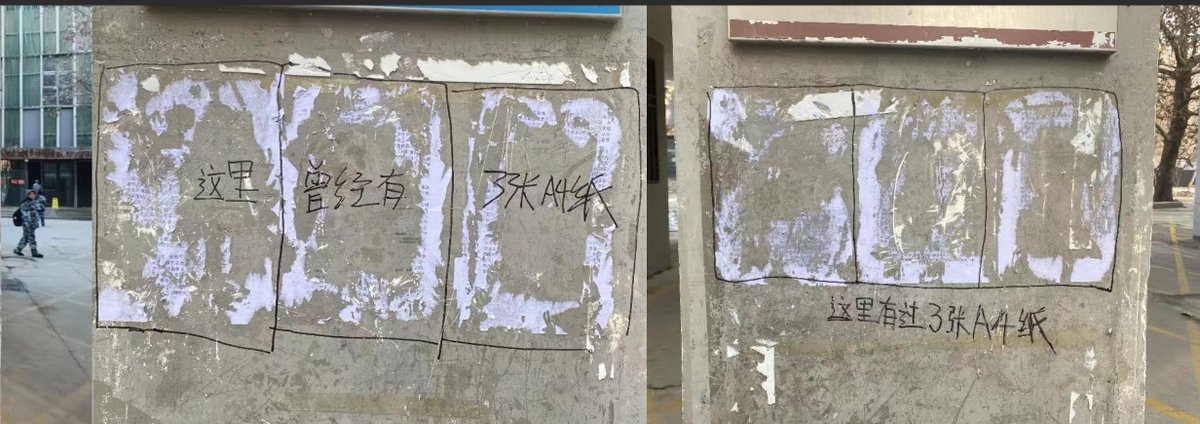 这里 曾经有 3张A4纸
这里有过3张A4纸